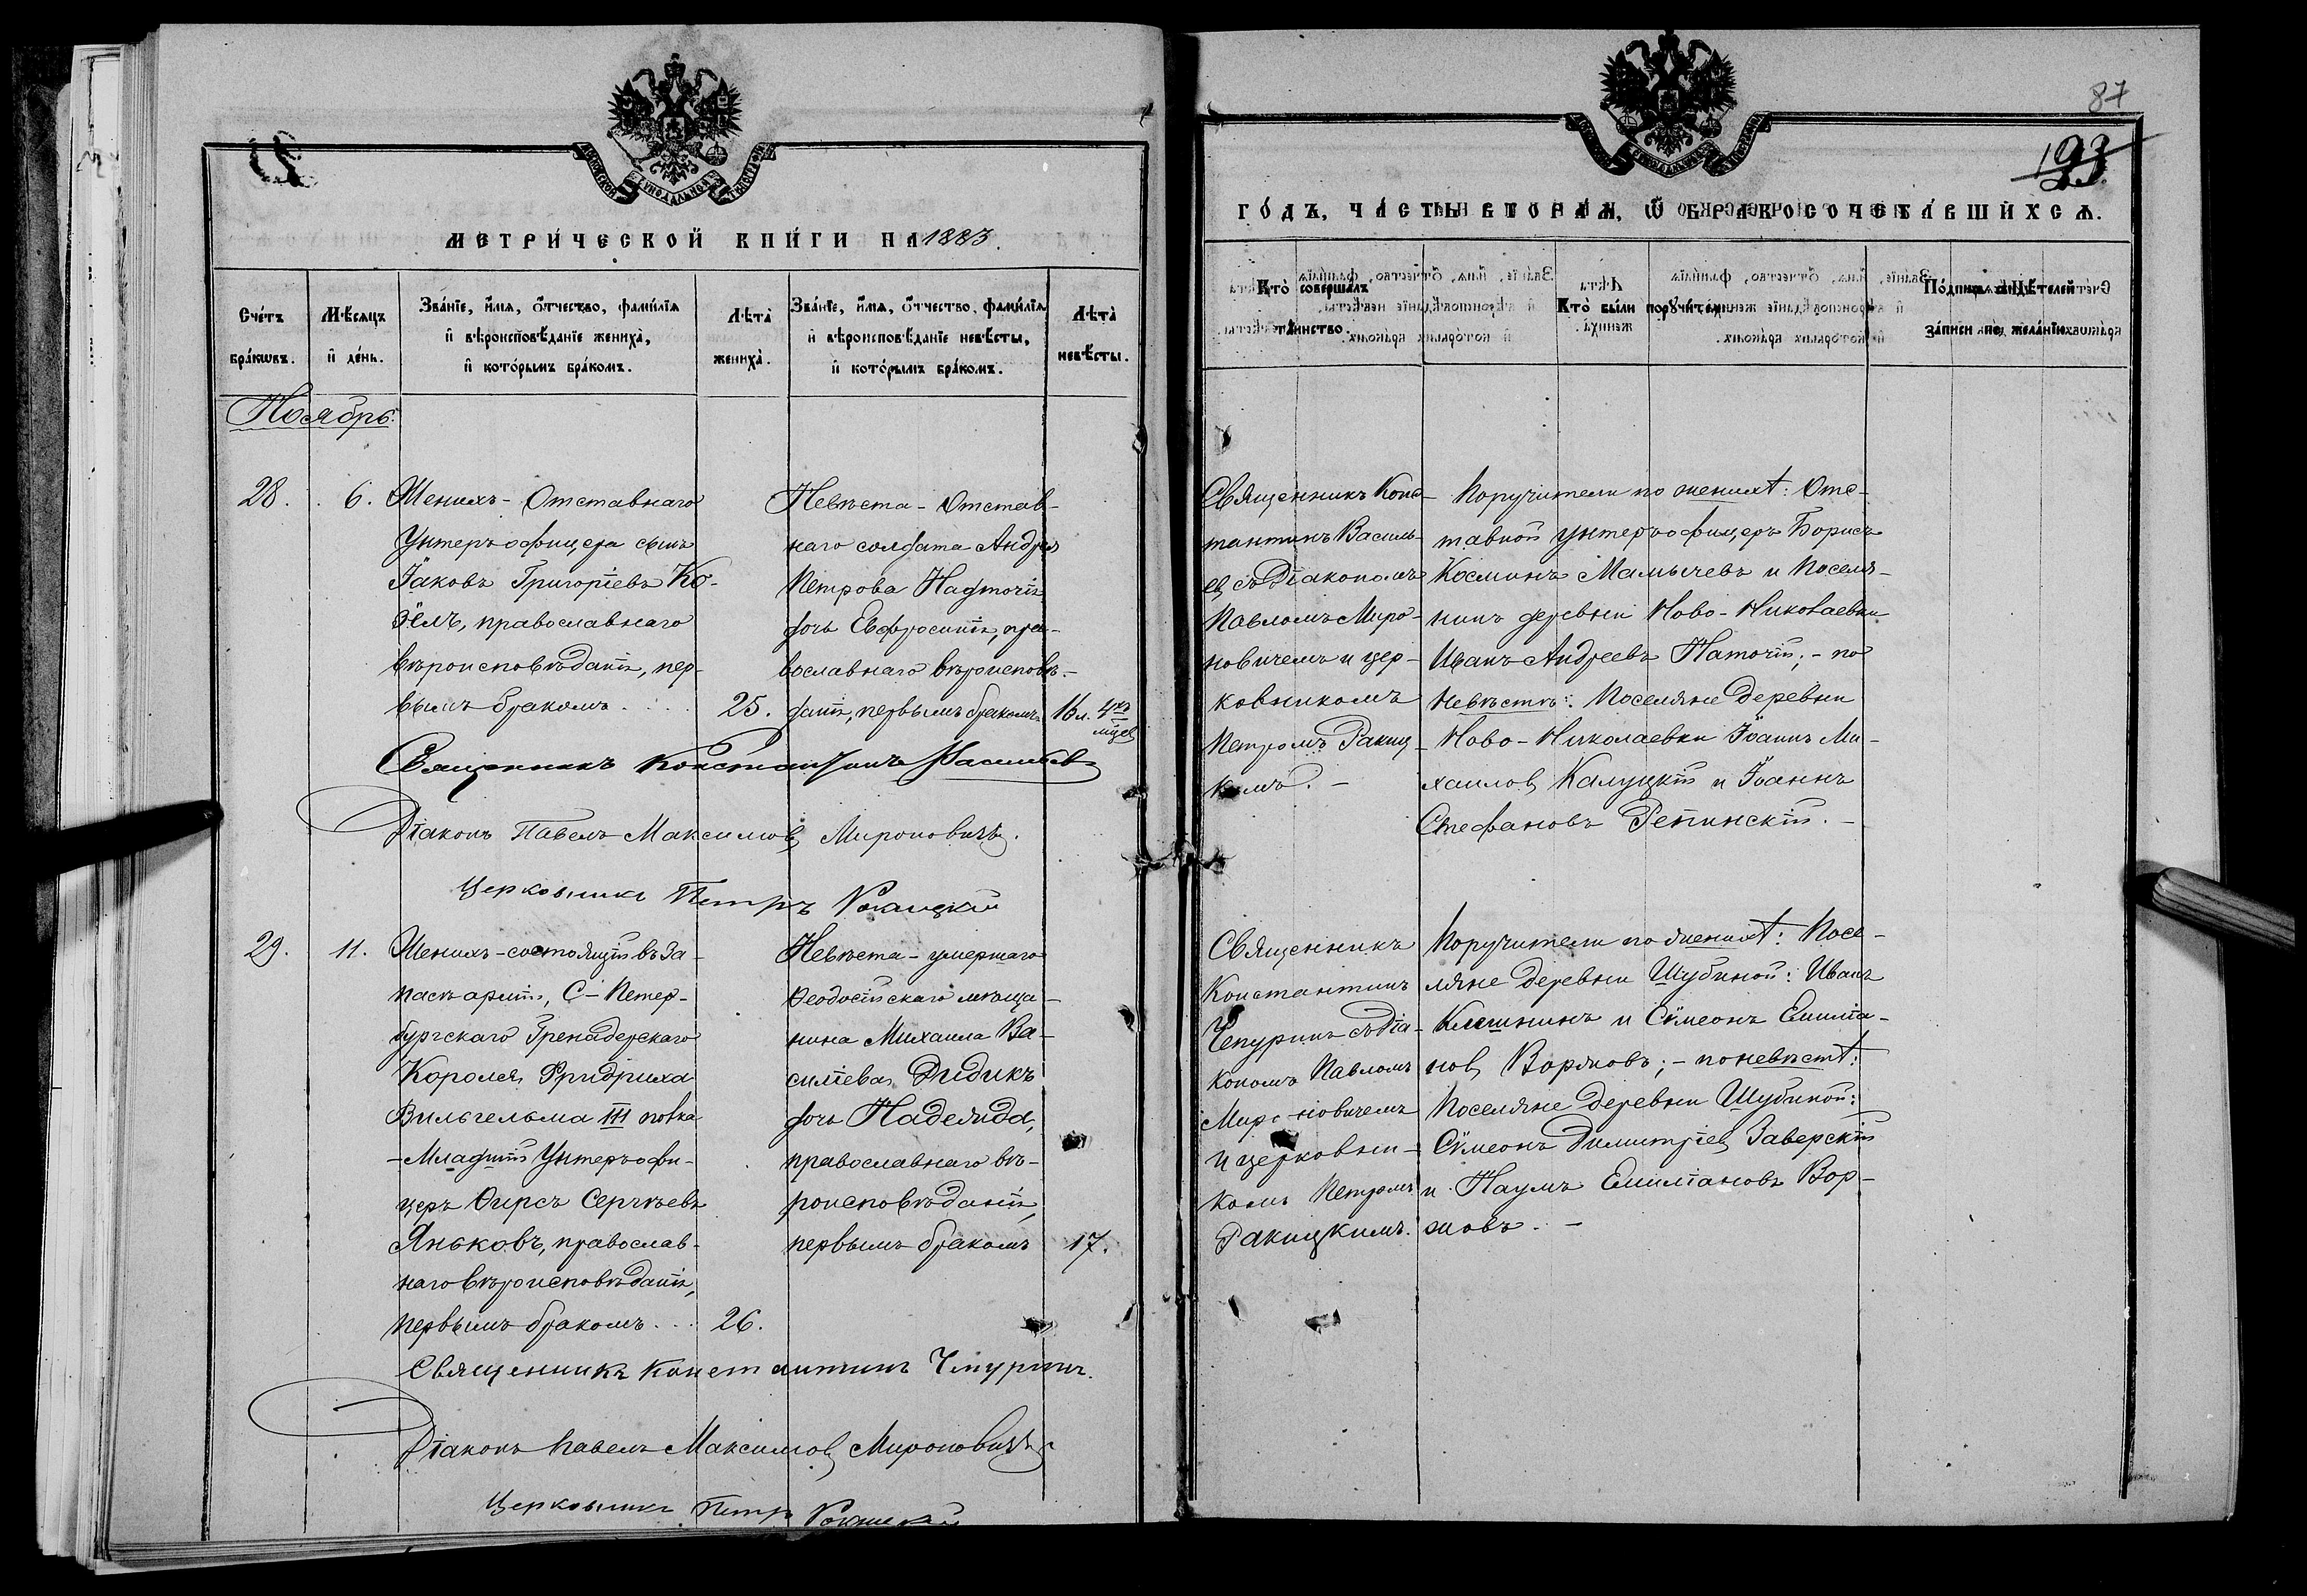 МЕТРИ́ЧЕСКОЙ КНИ́ГИ НА 1883.
Сче́тъ бра́кωвъ.
Мѣ́сяцъ и҆ де́нь.
Зва́нїе, и҆́мя, ѻ҆́тчество, фами́лїя
и҆ вѣроисповѣ́данїе жениха̀,
и҆ кото́рымъ бра́комъ.
Лѣта̀ жениха̀.
Зва́нїе, и҆́мя, ѻ҆́тчество, фами́лїя
и҆ вѣроисповѣ́данїе невѣ́сты,
и҆ кото́рымъ бра́комъ.
Лѣта̀ невѣ́сты.
Ноябрь.
28.
6.
Женихъ - Отставнаго
Унтеръ офицера сынъ
Іаковъ Григоріевъ Ко-
зёлъ, православнаго
вѣроисповѣданія, пер-
вымъ бракомъ
25.
Невѣста - Отстав-
наго солдата Андрея
Петрова Надточія
дочь Евфросинія, пра-
вославнаго вѣроисповѣ-
данія, первымъ бракомъ
16 л. 4 мцев
Священникъ Константинъ Васильевъ
Діаконъ Павелъ Максимовъ Мироновичъ.
Церковникъ Петръ Ракицкій
29.
11.
Женихъ - состоящій въ За-
пасѣ арміи, С-Петер-
бургскаго Гренадерскаго
Короля Фридриха
Вильгельма III полка
- Младшій Унтеръ офи-
церъ Ѳирсъ Сергѣевъ
Яньковъ, православ-
наго вѣроисповѣданія,
первымъ бракомъ
26.
Невѣста - умершаго
Ѳеодосійскаго мѣща-
нина Михаила Ва-
силіева Дидикъ
дочь Надежда,
православнаго вѣ-
роисповѣданія,
первымъ бракомъ
17.
Священникъ Константинъ Чепуринъ.
Діаконъ Павелъ Максимовъ Мироновичъ
Церковникъ Петръ Ракицкій
87
193
23.
ГО́ДЪ, ЧА́СТЬ ВТОРА́Я, Ѽ БРАКОСОЧЕТА́ВШИХСЯ.
Кто̀ соверша́лъ
та́инство.
Кто̀ бы́ли поручи́тели.
По́дпись свидѣ́телей
за́писи по жела́нїю.
Священникъ Конс-
тантинъ Василь-
евъ съ Діакономъ
Павломъ Миро-
новичемъ и цер-
ковникомъ
Петромъ Ракиц-
кимъ. -
Поручители по женихѣ: Отс-
тавной унтеръ офицеръ Борисъ
Косминъ Мамычевъ и Поселя-
нинъ деревни Ново-Николаевки
Иванъ Андреевъ Наточій; - по
невѣстѣ: Поселяне Деревни
Ново-Николаевки Іоаннъ Ми-
хаиловъ Калуцкій и Іоаннъ
Стефановъ Репинскій. -
Священникъ
Константинъ
Чепуринъ съ Діа-
кономъ Павломъ
Мироновичемъ
и церковни-
комъ Петромъ
Ракицкимъ.
Поручители по женихѣ: Посе-
ляне деревни Шубиной: Иванъ
Клешнинъ и Сѵмеонъ Емилiа-
новъ Воржовъ; - по невѣстѣ:
Поселяне Деревни Шубиной:
Сѵмеонъ Димитріевъ Заверскій
и Наумъ Емиліановъ Вор-
жовъ. -